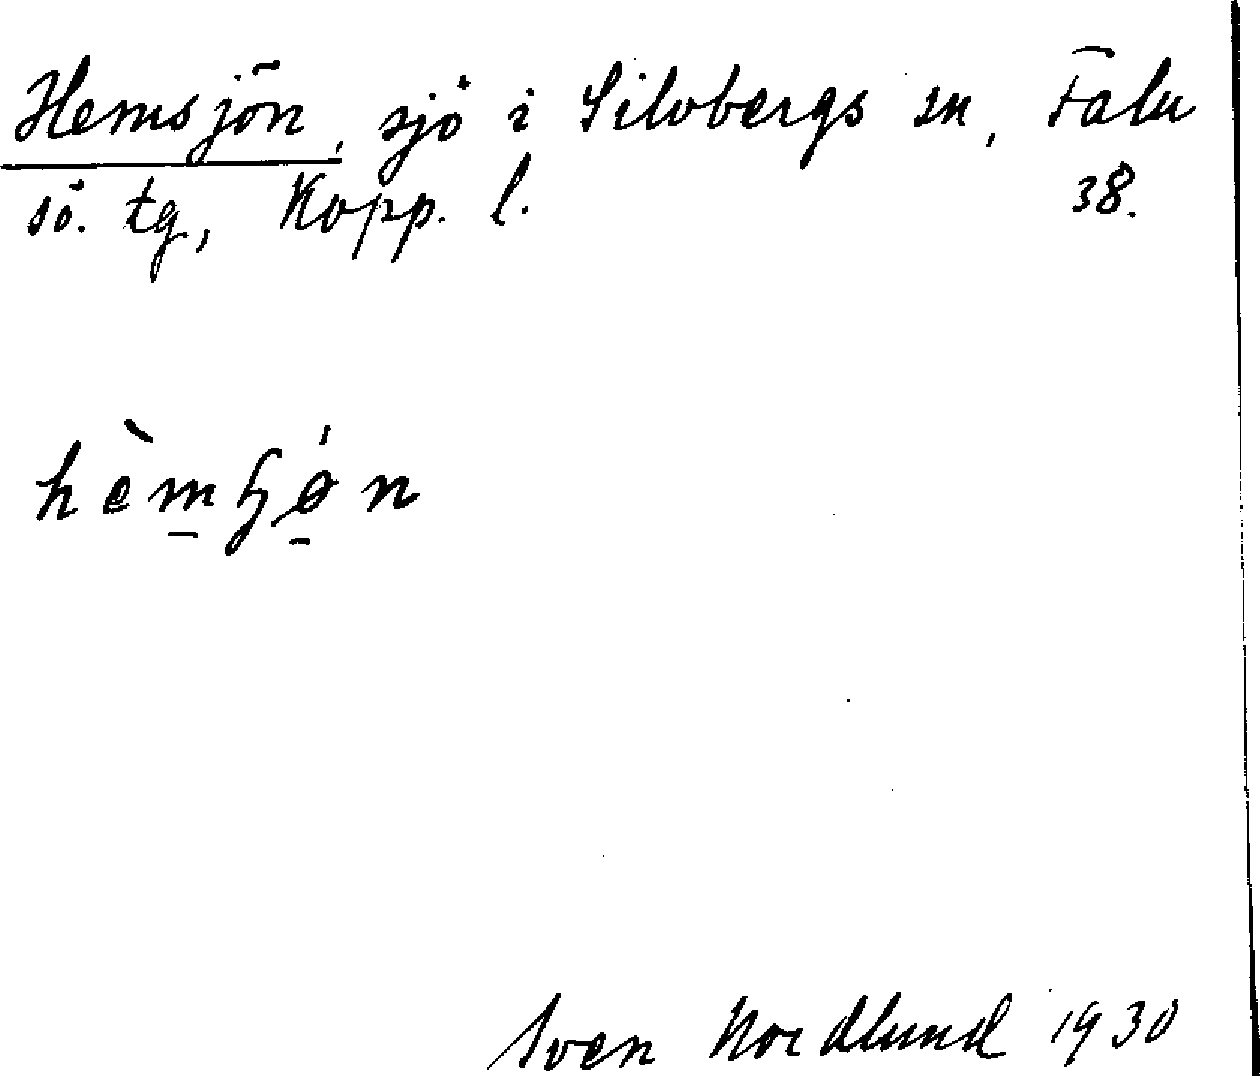 Hemsjön, sjö i Silvbergs sn, Falu
sö. tg, Kopp. l. 38.
Sven Nordlund 1930